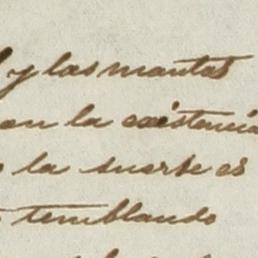 y las mantas
on la existencia
la suerte es
temblando